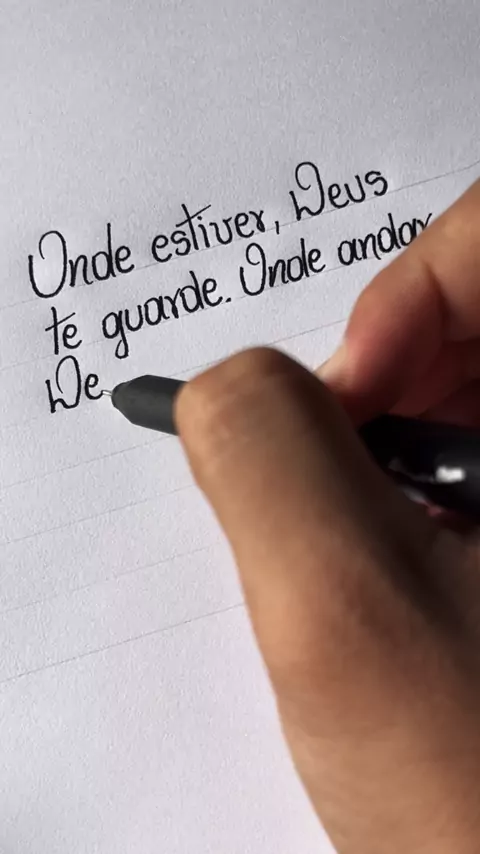 Onde estiver, Deus
te guarde. Onde andar
De